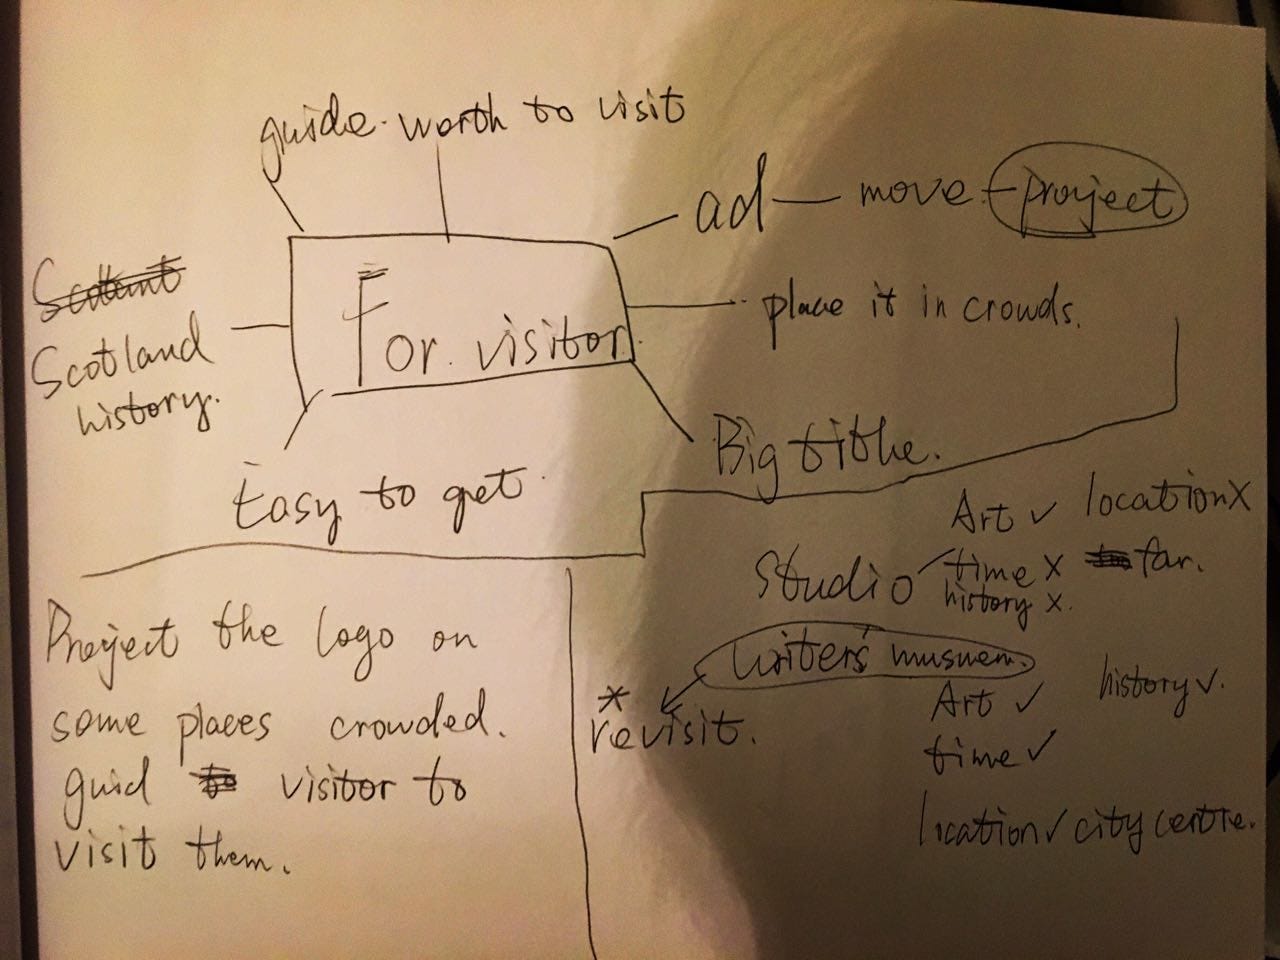 guide. worth to visit
ad — move - project
Scotland
history.
For visitor.
place it in crowds.
Big tithe.
Easy to get.
Project the logo on
some places crowded.
guid visitor to
visit them.
Studio
Art ✓ location x
time x far.
history x.
Writer's musuem.
* revisit.
Art ✓ history ✓.
time ✓
location ✓ city centre.